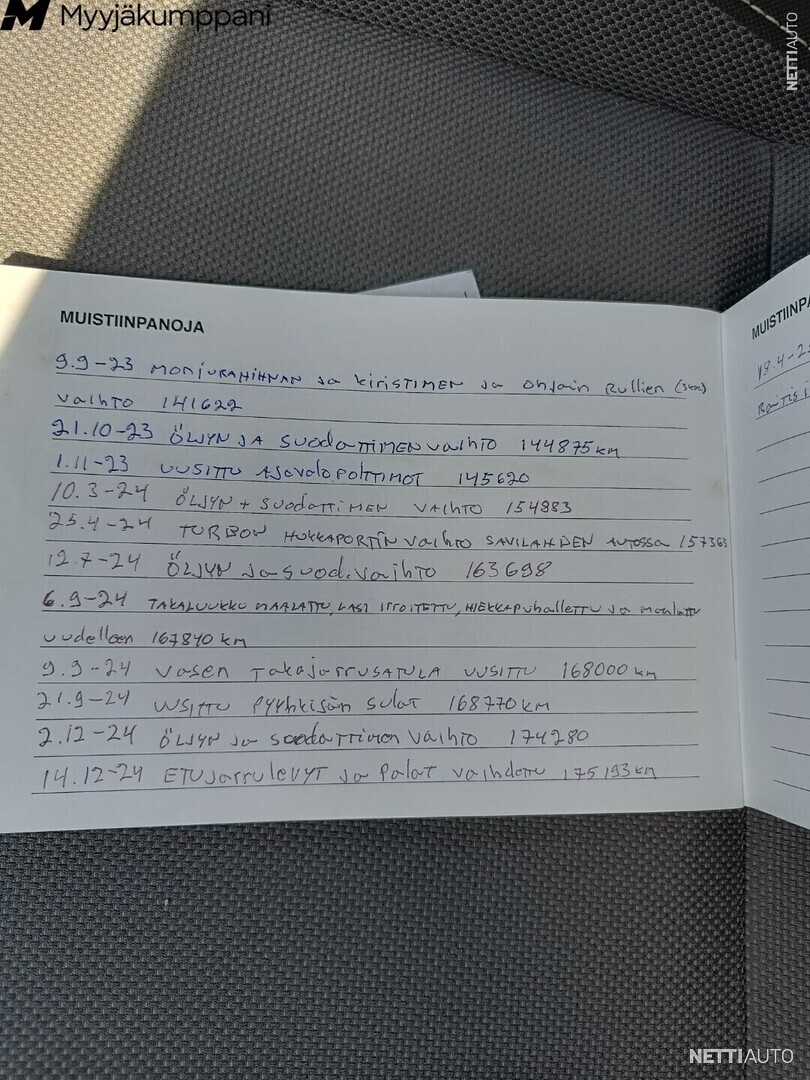 Myyjäkumppani
NETTIAUTO
MUISTIINPANOJA
9.9-23 MONIURAHIHNAN ja kiristimen ja ohjain Rullien
vaihto 141622
21.10-23 ÖLJYN JA suodattimen vaihto 144875 km
1.11-23 UUSITTU AJOVALOPOLTTIMOT 145620
10.3-24 ÖLJYN + suodattimen vaihto 154983
25.4-24 TURBON HUKKAPORTIN vaihto SAVILAHDEN AUTOSSA 157363
12.7-24 ÖLJYN ja suod.vaihto 163698
6.9-24 TAKALUUKKU MAALATTU, LASI IRROITETTU, HIEKKAPUHALLETTU ja maalattu
uudelleen 167840 km
9.9-24 vasen TAKAJARRUSATULA UUSITTU 168000 km
21.9-24 UUSITTU Pyyhkijän sulat 168770 km
2.12-24 ÖLJYN ja suodattimen vaihto 174280
14.12-24 ETUJARRULEVYT ja Palat vaihdettu 175193 km
MUISTIINPA
NETTIAUTO